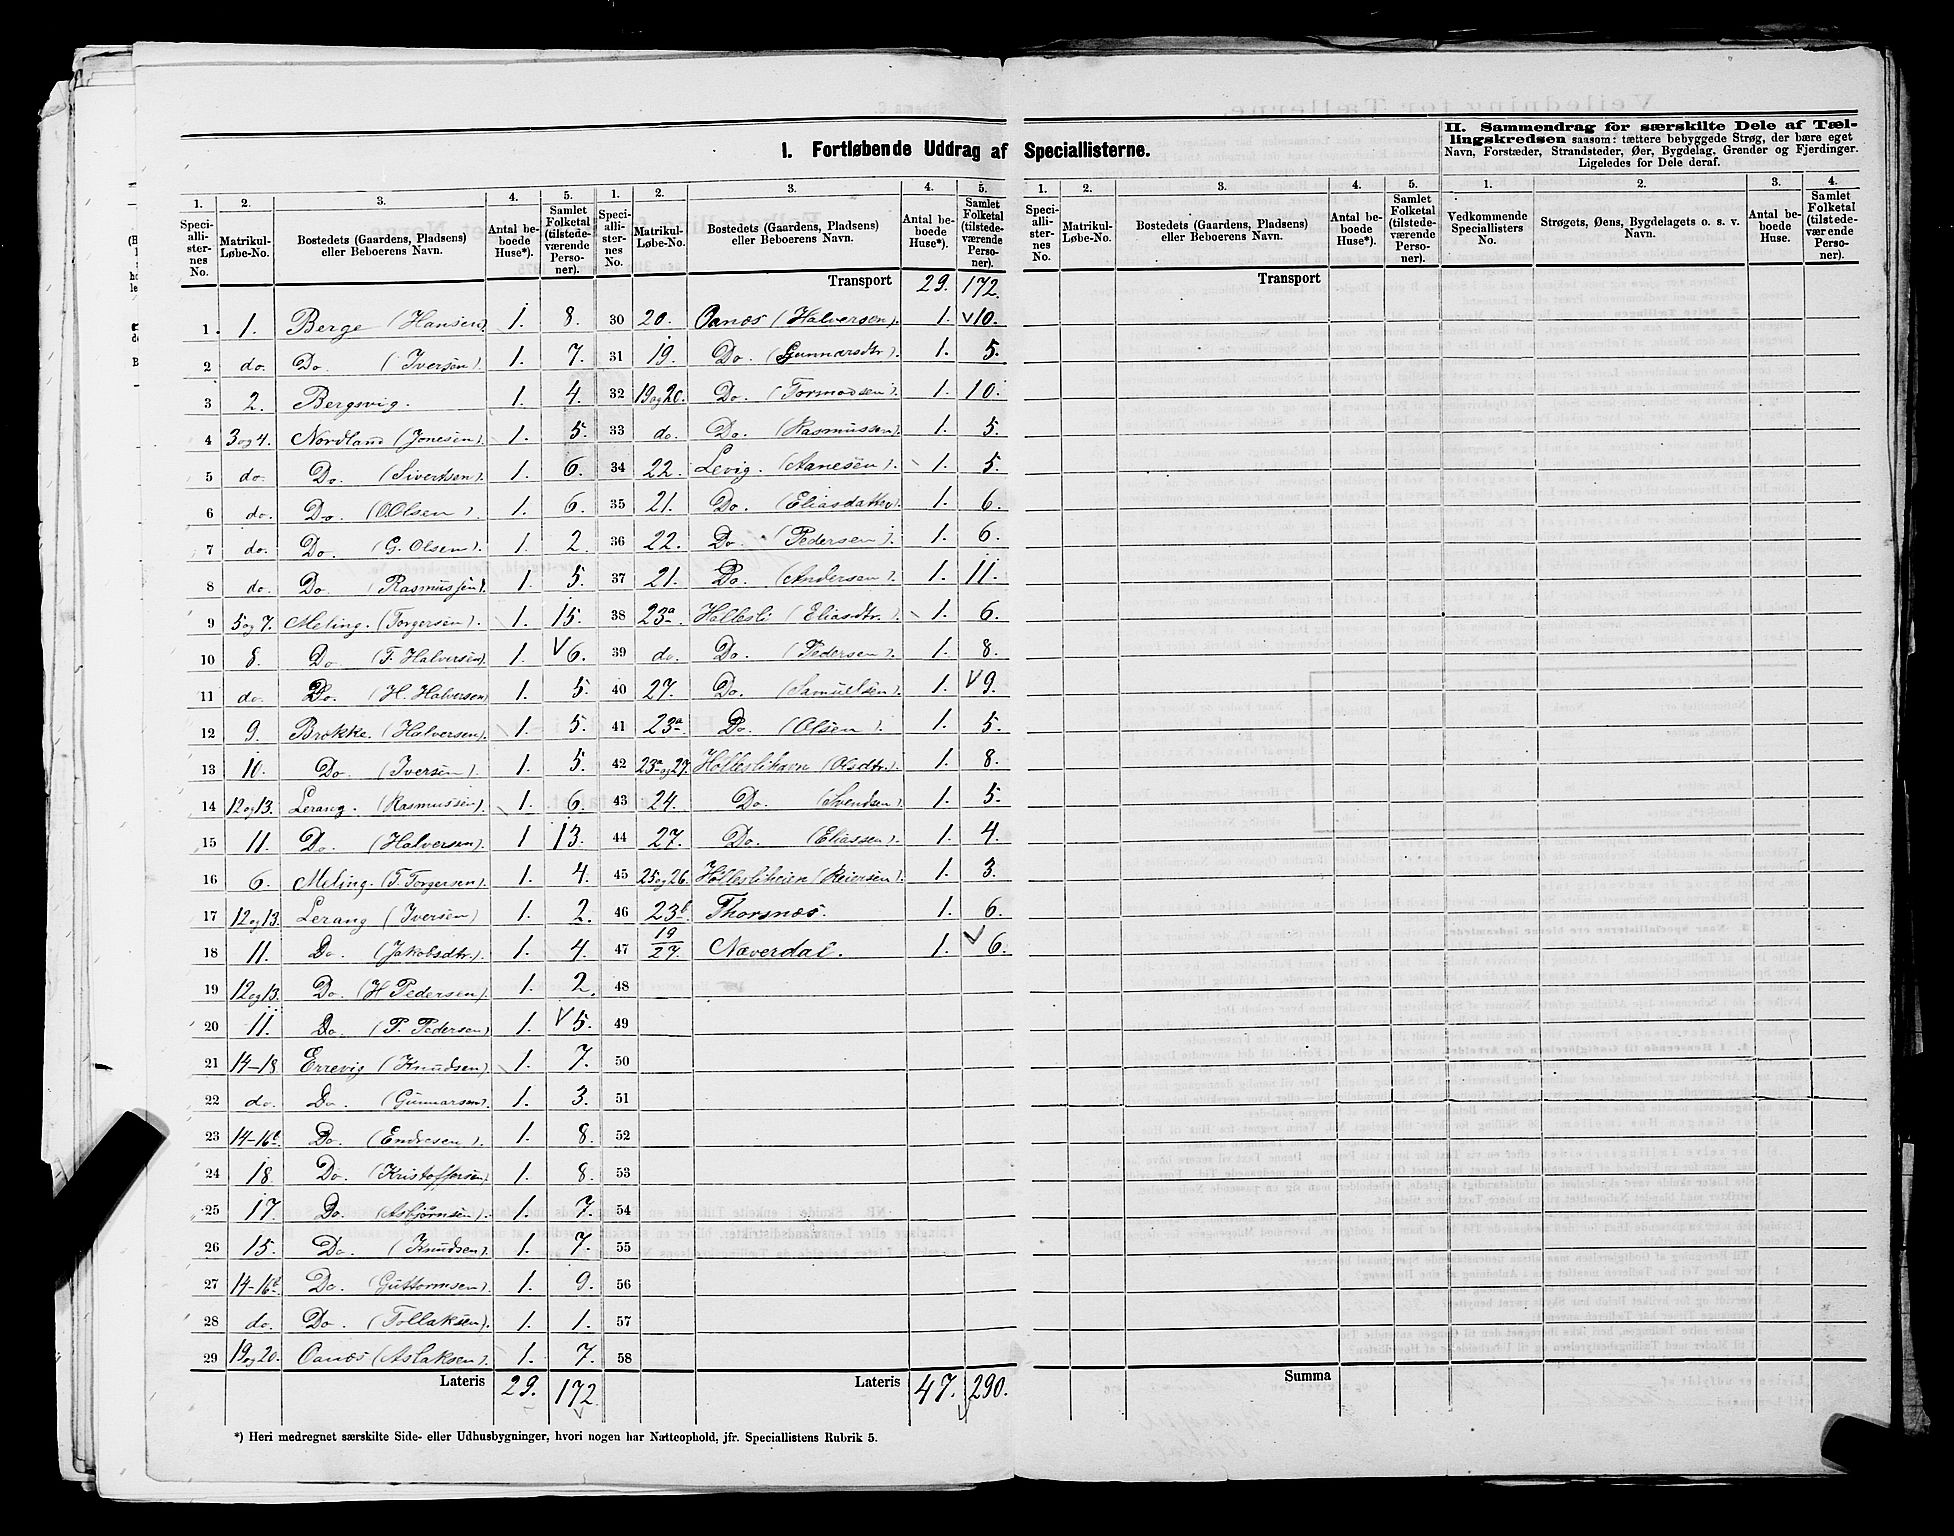 I. Fortløbende Uddrag af Speciallisterne.
II. Sammendrag for særskilte Dele af Tællingskredsen saasom: tættere bebyggede Strøg, der bære eget
Navn, Forstæder, Strandsteder, Øer, Bygdelag, Grender og Fjerdinger.
Ligeledes for Dele deraf.
1. 2. 3. 4. 5. 1. 2. 3. 4. 5. 1. 2. 3. 4. 5. 1. 2. 3. 4.
Speciallisternes No. Matrikul-Løbe-No. Bostedets (Gaardens, Pladsens) eller Beboerens Navn. Antal beboede Huse*). Samlet Folketal (tilstedeværende Personer).
Speciallisternes No. Matrikul-Løbe-No. Bostedets (Gaardens, Pladsens) eller Beboerens Navn. Antal beboede Huse*). Samlet Folketal (tilstedeværende Personer).
Speciallisternes No. Matrikul-Løbe-No. Bostedets (Gaardens, Pladsens) eller Beboerens Navn. Antal beboede Huse*). Samlet Folketal (tilstedeværende Personer).
Vedkommende Speciallisters No. Strøgets, Øens, Bygdelagets o. s. v. Navn. Antal beboede Huse. Samlet Folketal (tilstedeværende Personer).
1 1. Berge (Hansen) 1. 8.
2 do. Do (Iversen). 1. 7.
3 2. Bergsvig. 1. 4.
4 3 og 4. Nordland (Jonesen). 1. 5.
5 do. Do. (Sivertsen). 1. 6.
6 do. Do. (O Olsen). 1. 6.
7 do. Do. (G. Olsen). 1. 2.
8 do. Do. (Rasmussen). 1. 5.
9 5 og 7. Meling. (Torgersen). 1. 15.
10 8. Do (T. Halversen). 1. 6.
11 do. Do. (H. Halversen) 1. 5.
12 9. Brække. (Halversen). 1. 5.
13 10. Do. (Iversen). 1. 5.
14 12 og 13. Lerang. (Rasmussen). 1. 6.
15 11. Do. (Halversen) 1 13.
16 6. Meling. (T. Torgersen). 1. 4.
17 12 og 13. Lerang (Iversen) 1. 2.
18 11. Do. (Jakobsdtr.) 1. 4.
19 12 og 13. Do. (H Pedersen). 1. 2.
20 11. Do (P. Pedersen) 1. 5.
21 14-18 Errevig (Knudsen) 1. 7.
22 do. Do. (Gunnarsen). 1. 3.
23 14-16b. Do. (Endresen). 1. 8.
24 18. Do. (Kristoffersen) 1. 8.
25 17. Do. (Asbjørnsen). 1. 7.
26 15. Do. (Knudsen). 1. 7.
27 14-16b. Do. (Guttormsen). 1. 9.
28 do. Do. (Tollaksen). 1. 1.
29 19 og 20. Oanæs (Aslaksen). 1. 7.
Lateris 29. 172
Transport 29. 172.
30 20. Oanæs (Halversen). 1. 10.
31 19. Do. (Gunnarsdtr). 1. 5.
32 19 og 20. Do. (Tormodsen). 1. 10.
33 do. Do. (Rasmussen). 1. 5.
34 22. Levig. (Aanesen). 1. 5.
35 21. Do. (Eliasdatter). 1. 6.
36 22. Do. (Pedersen). 1. 6.
37 21. Do. (Andersen). 1. 11.
38 23a. Høllesli (Eliasdtr.). 1. 6.
39 do. Do. (Pedersen). 1. 8.
40 27. Do. (Samuelsen). 1. 9.
41 23a. Do. (Olsen). 1. 5.
42 23a og 27. Hølleslihavn (Olsdtr.). 1. 8.
43 24. Do. (Svendsen). 1. 5.
44 27. Do. (Eliassen). 1. 4.
45 25 og 26. Høllesliheien (Reiersen). 1. 3.
46 23b. Thorsnæs. 1. 6.
47 19/27. Næverdal. 1. 6.
48
49
50
51
52
53
54
55
56
57
58
Lateris 47. 290.
Transport
Summa
*) Heri medregnet særskilte Side- eller Udhusbygninger, hvori nogen har Natteophold, jfr. Speciallistens Rubrik 5.